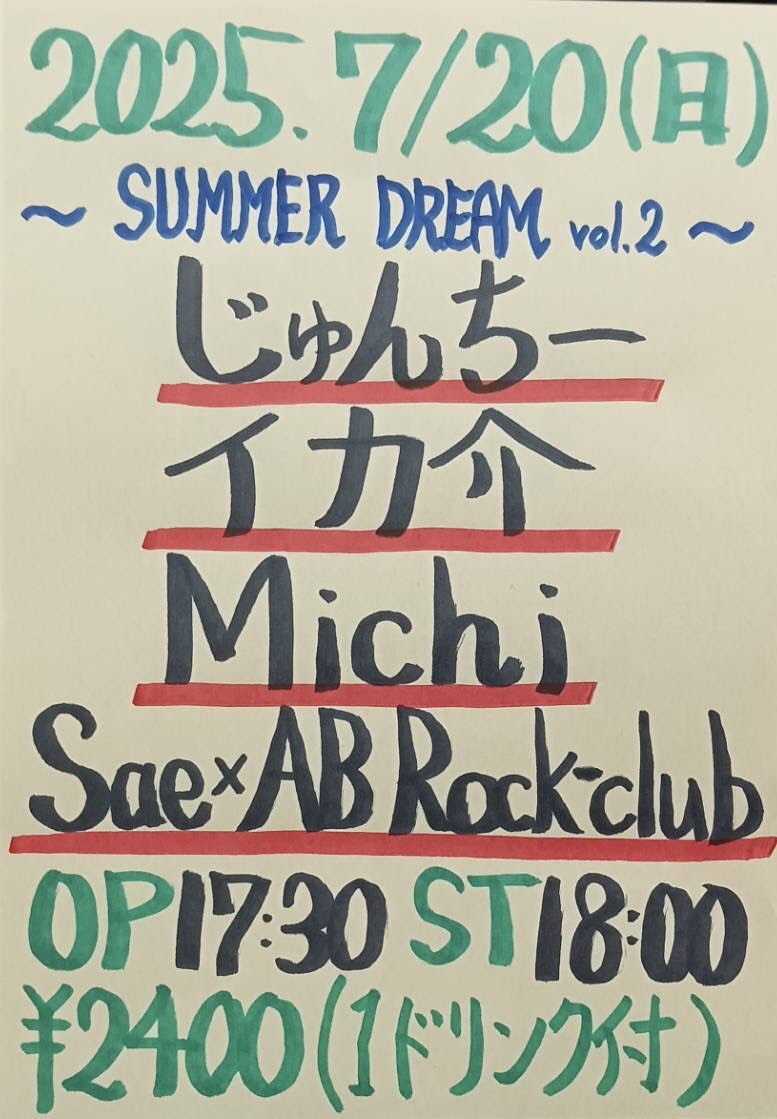 2025.7/20(日)
～ SUMMER DREAM vol.2 ～
じゅんちー
イカ介
Michi
Sae×AB Rock-club
OP17:30 ST18:00
¥2400(1ドリンク付)